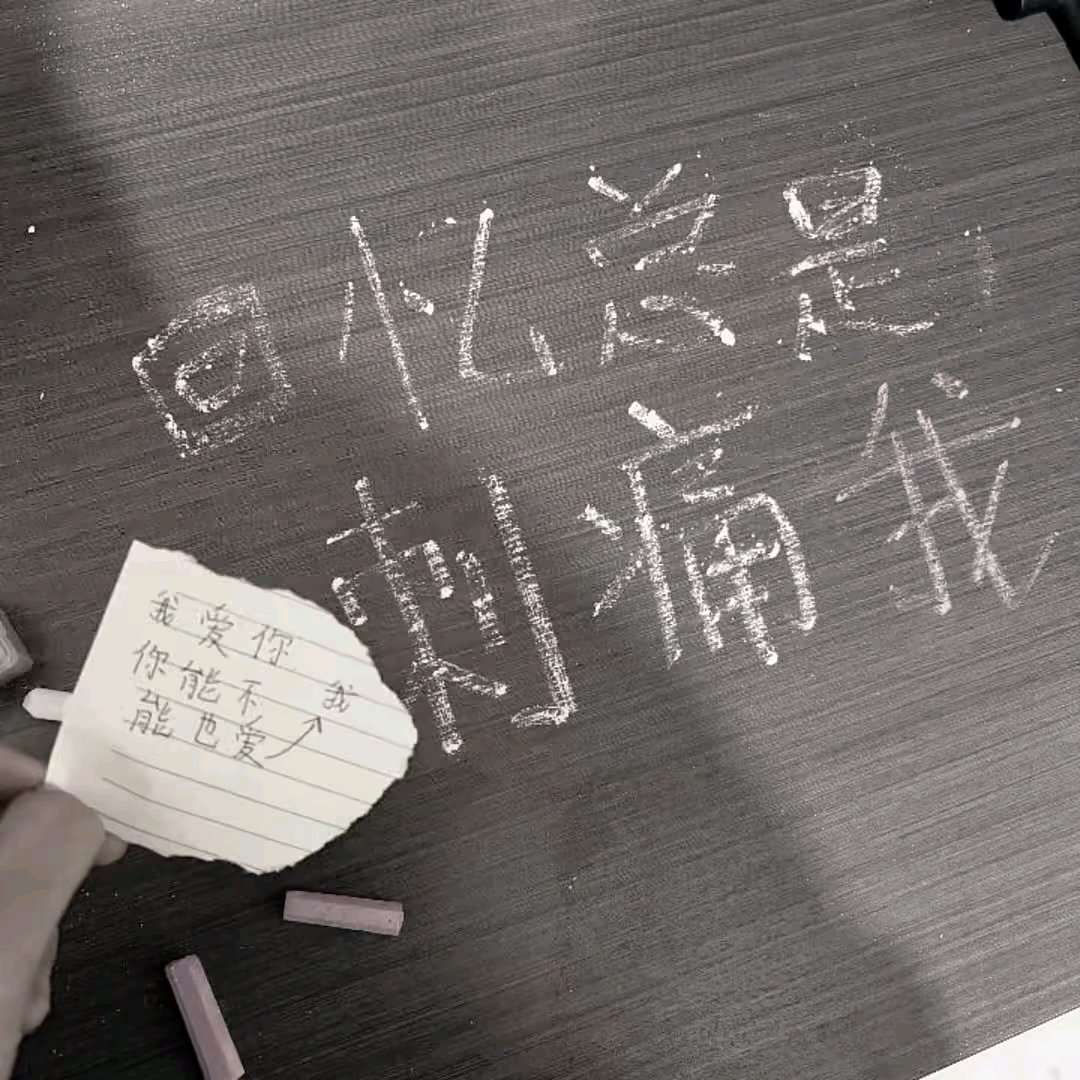 回忆总是
刺痛我
我爱你
你能不 我
能也爱↗